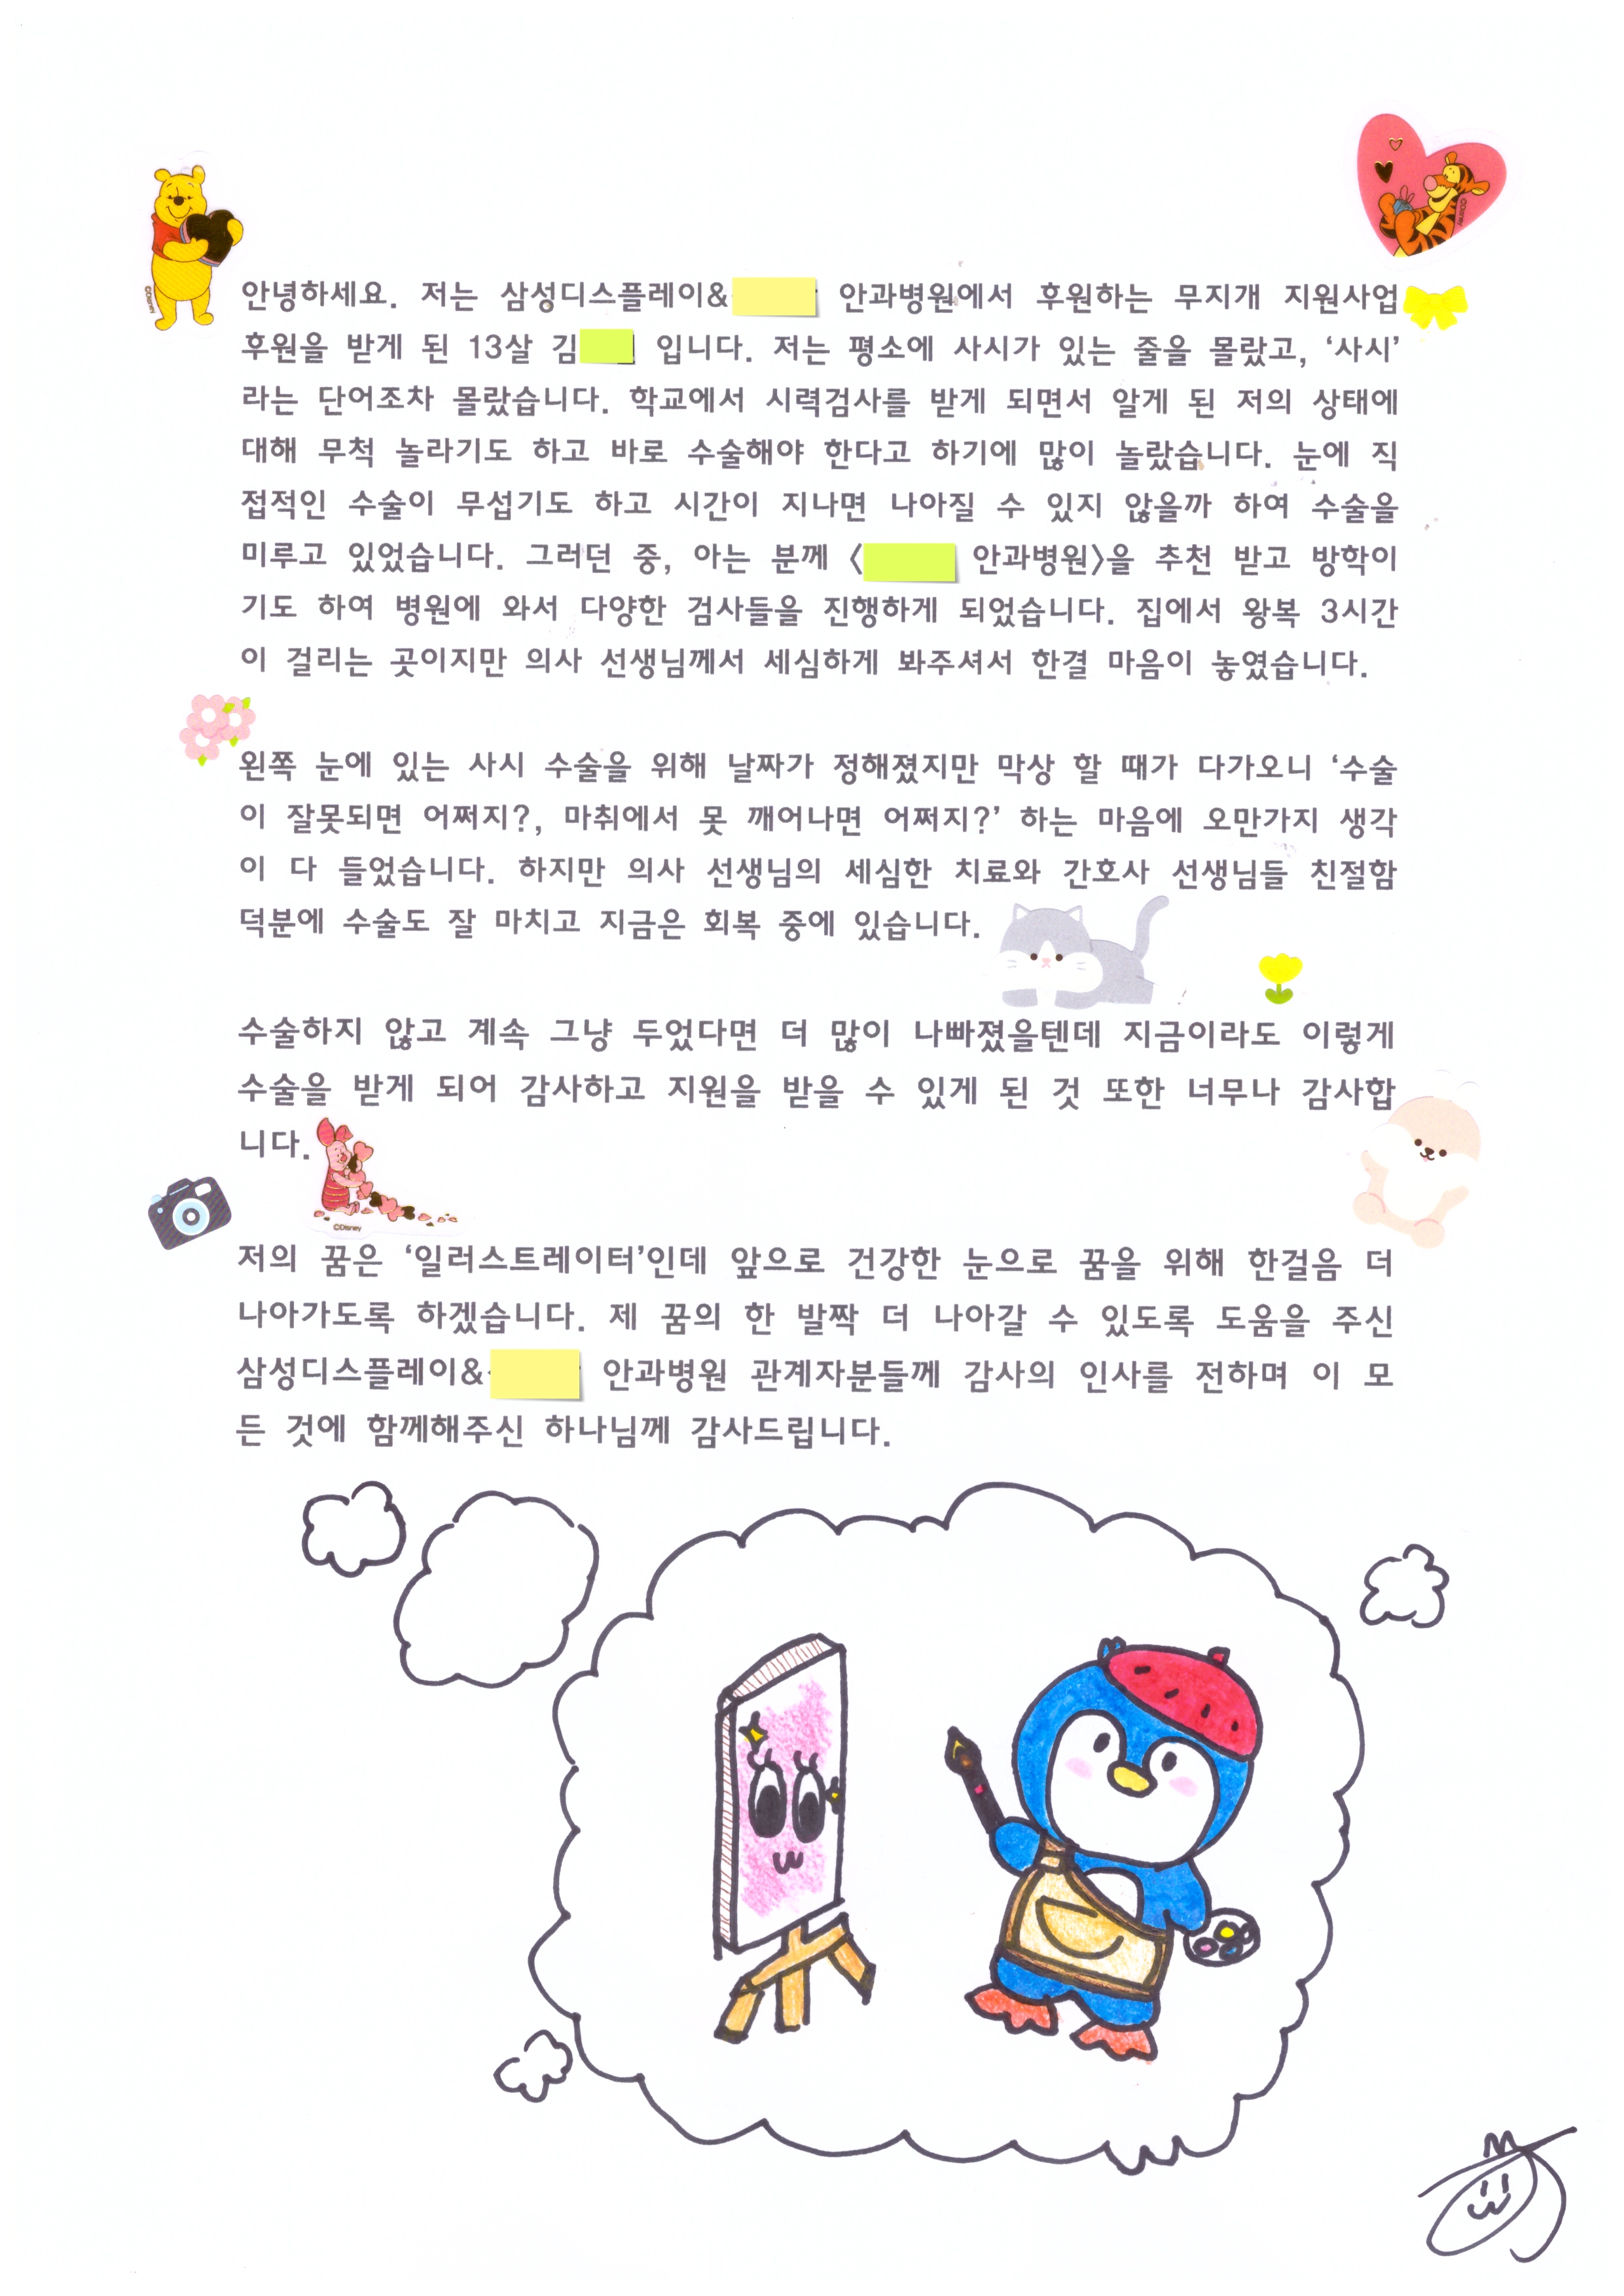 안녕하세요. 저는 삼성디스플레이& 안과병원에서 후원하는 무지개 지원사업
후원을 받게 된 13살 김 입니다. 저는 평소에 사시가 있는 줄을 몰랐고, ‘사시’
라는 단어조차 몰랐습니다. 학교에서 시력검사를 받게 되면서 알게 된 저의 상태에
대해 무척 놀라기도 하고 바로 수술해야 한다고 하기에 많이 놀랐습니다. 눈에 직
접적인 수술이 무섭기도 하고 시간이 지나면 나아질 수 있지 않을까 하여 수술을
미루고 있었습니다. 그러던 중, 아는 분께 < 안과병원>을 추천 받고 방학이
기도 하여 병원에 와서 다양한 검사들을 진행하게 되었습니다. 집에서 왕복 3시간
이 걸리는 곳이지만 의사 선생님께서 세심하게 봐주셔서 한결 마음이 놓였습니다.
왼쪽 눈에 있는 사시 수술을 위해 날짜가 정해졌지만 막상 할 때가 다가오니 ‘수술
이 잘못되면 어쩌지?, 마취에서 못 깨어나면 어쩌지?’ 하는 마음에 오만가지 생각
이 다 들었습니다. 하지만 의사 선생님의 세심한 치료와 간호사 선생님들 친절함
덕분에 수술도 잘 마치고 지금은 회복 중에 있습니다.
수술하지 않고 계속 그냥 두었다면 더 많이 나빠졌을텐데 지금이라도 이렇게
수술을 받게 되어 감사하고 지원을 받을 수 있게 된 것 또한 너무나 감사합
니다.
©Disney
저의 꿈은 ‘일러스트레이터’인데 앞으로 건강한 눈으로 꿈을 위해 한걸음 더
나아가도록 하겠습니다. 제 꿈의 한 발짝 더 나아갈 수 있도록 도움을 주신
삼성디스플레이& 안과병원 관계자분들께 감사의 인사를 전하며 이 모
든 것에 함께해주신 하나님께 감사드립니다.